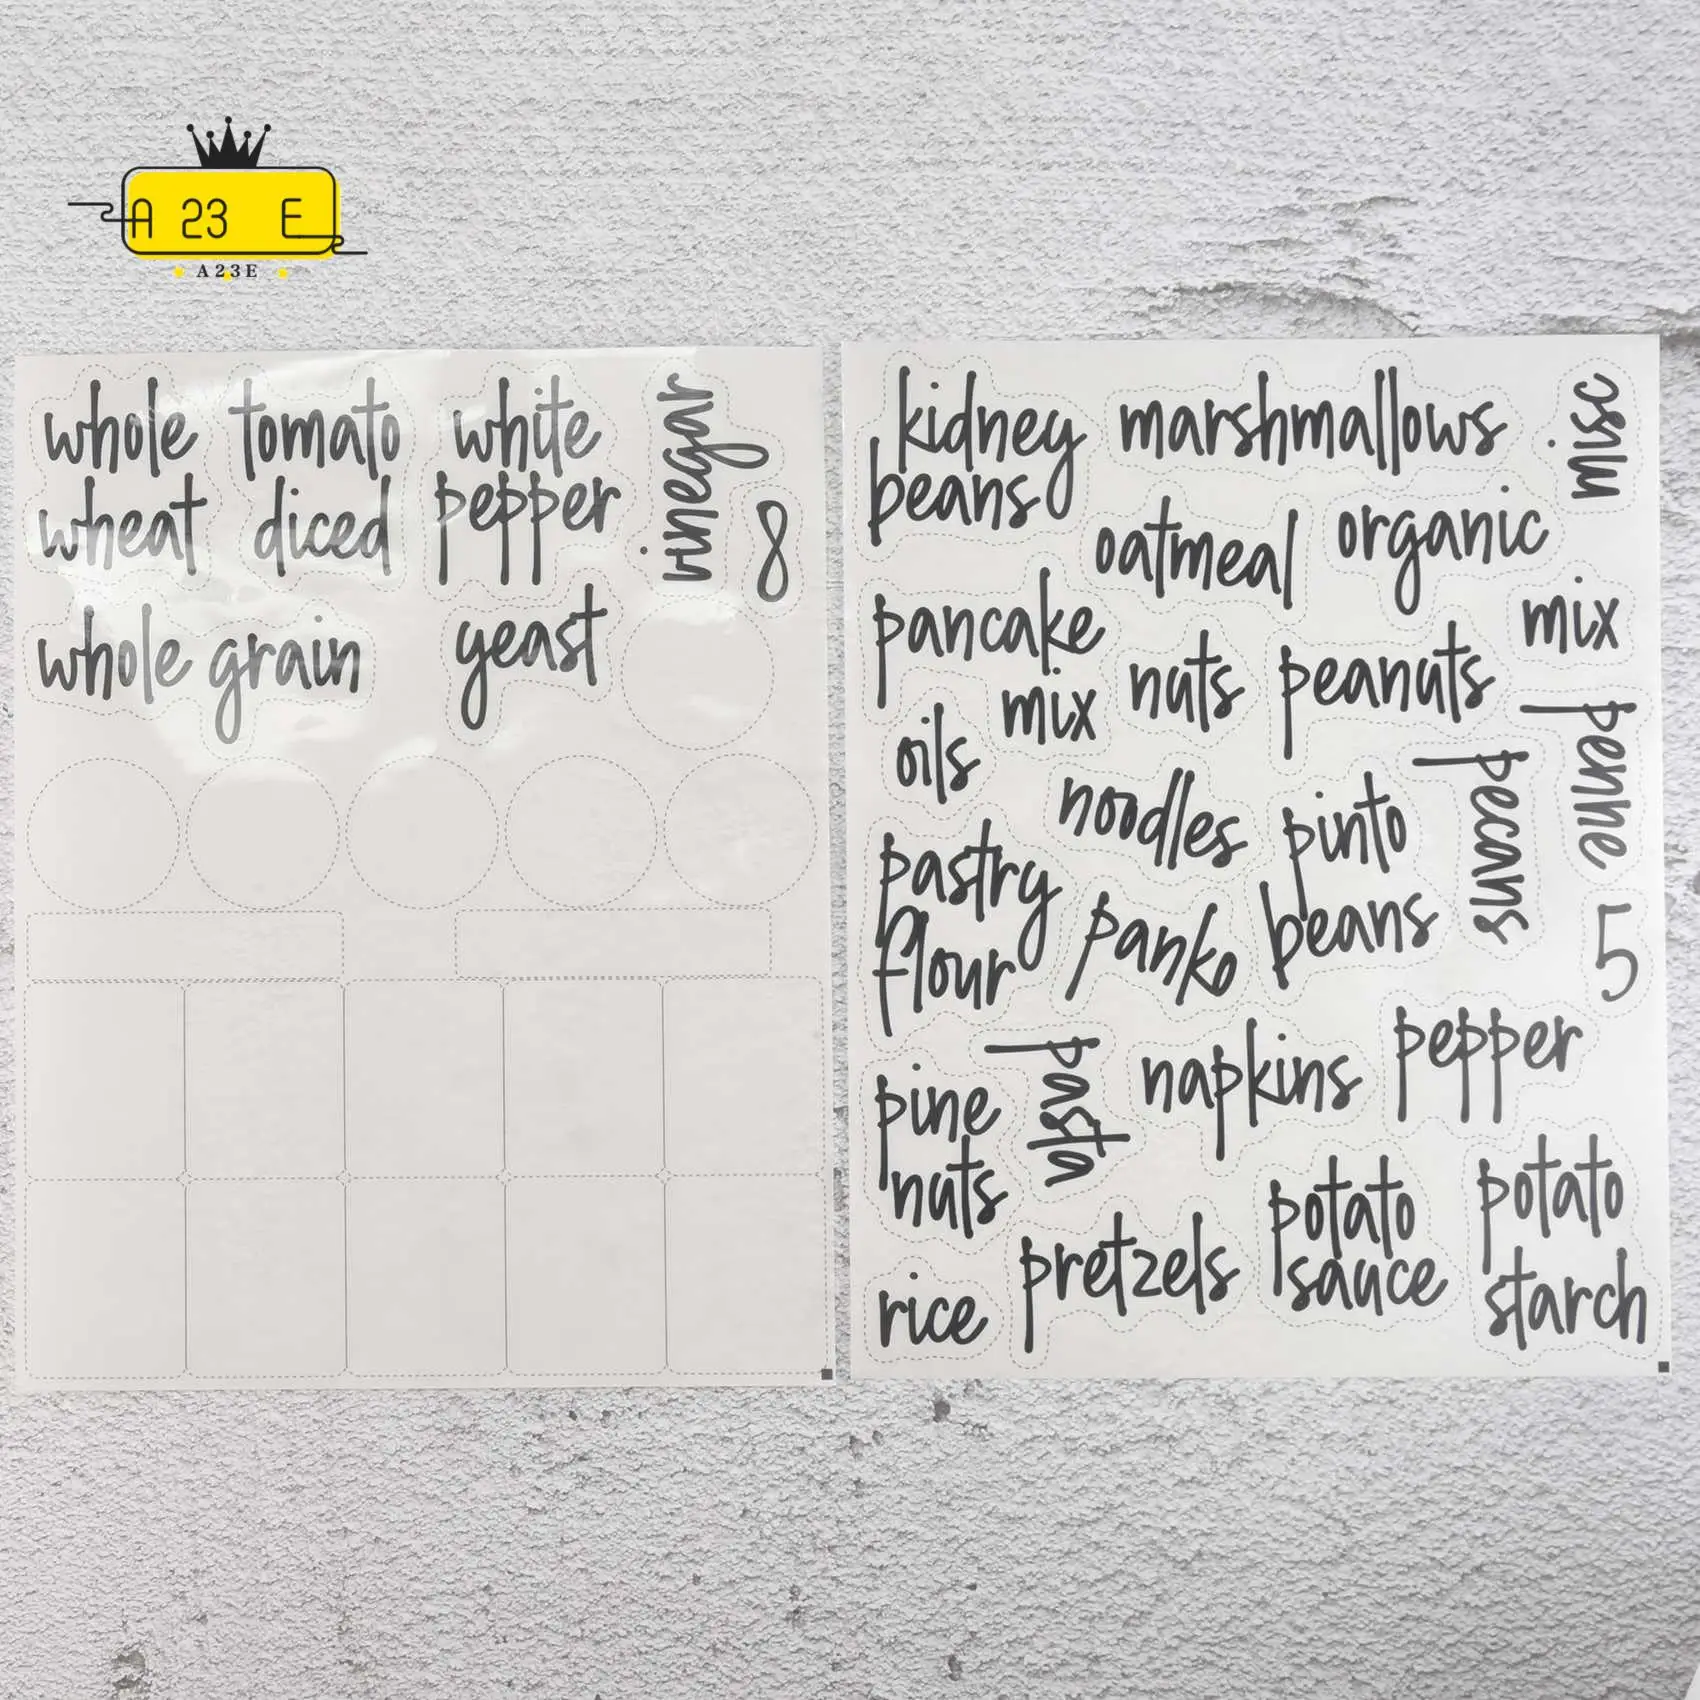 A 23 E
A23E
whole
wheat
tomato
diced
white
pepper
vinegar
8
whole grain
yeast
kidney
beans
marshmallows
misc
oatmeal
organic
pancake
mix
nuts
peanuts
mix
oils
noodles
pinto
beans
pecans
penne
pastry
flour
panko
5
pine
nuts
pasta
napkins
pepper
rice
pretzels
potato
sauce
potato
starch